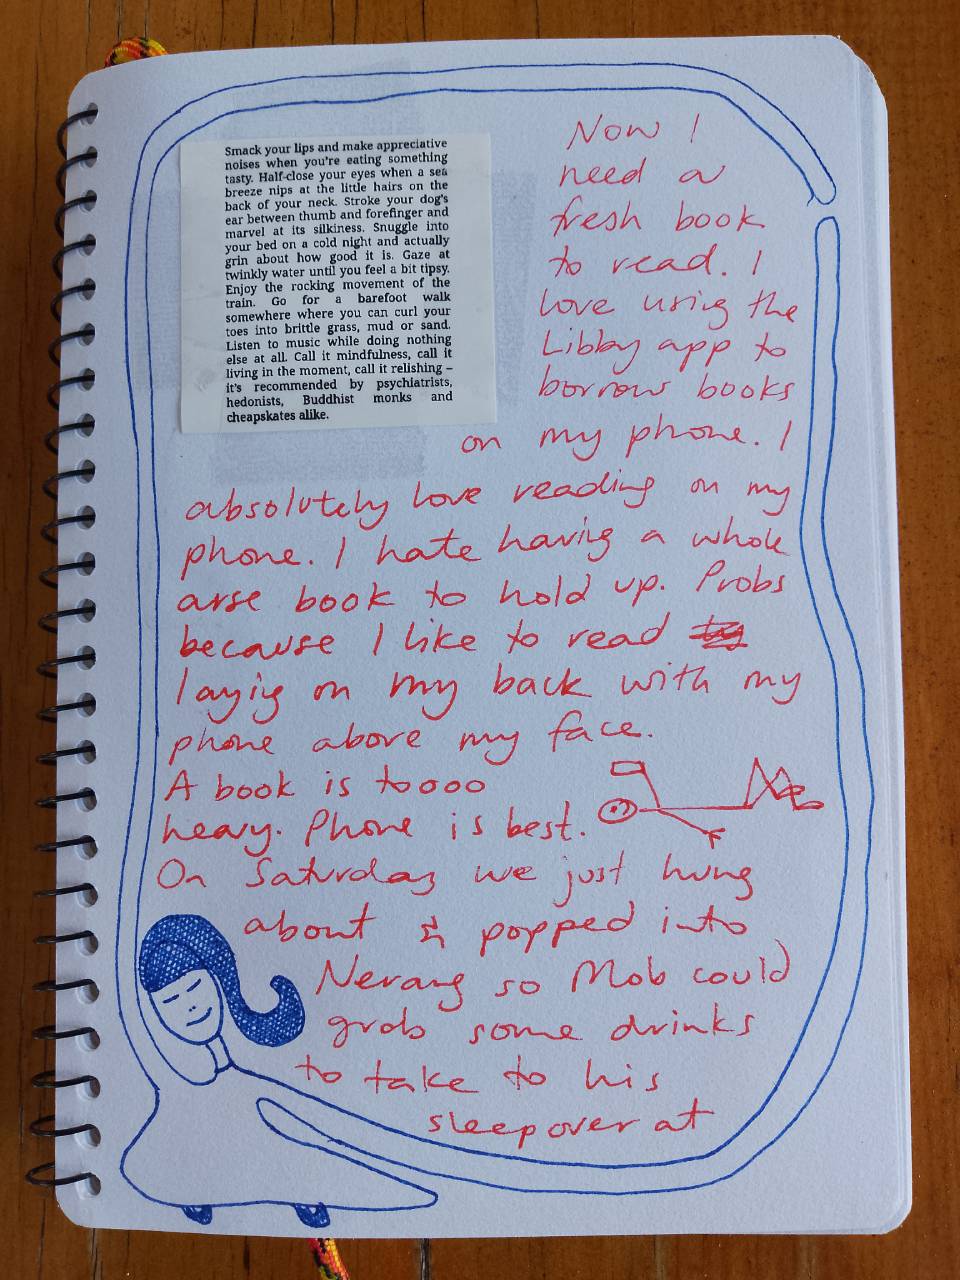 Smack your lips and make appreciative
noises when you're eating something
tasty. Half-close your eyes when a sea
breeze nips at the little hairs on the
back of your neck. Stroke your dog's
ear between thumb and forefinger and
marvel at its silkiness. Snuggle into
your bed on a cold night and actually
grin about how good it is. Gaze at
twinkly water until you feel a bit tipsy.
Enjoy the rocking movement of the
train. Go for a barefoot walk
somewhere where you can curl your
toes into brittle grass, mud or sand.
Listen to music while doing nothing
else at all. Call it mindfulness, call it
living in the moment, call it relishing –
it's recommended by psychiatrists,
hedonists, Buddhist monks and
cheapskates alike.
Now I
need a
fresh book
to read. I
love using the
Libby app to
borrow books
on my phone. I
absolutely love reading on my
phone. I hate having a whole
arse book to hold up. Probs
because I like to read
laying on my back with my
phone above my face.
A book is toooo
heavy. Phone is best.
On Saturday we just hung
about & popped into
Nerang so Mob could
grab some drinks
to take to his
sleepover at